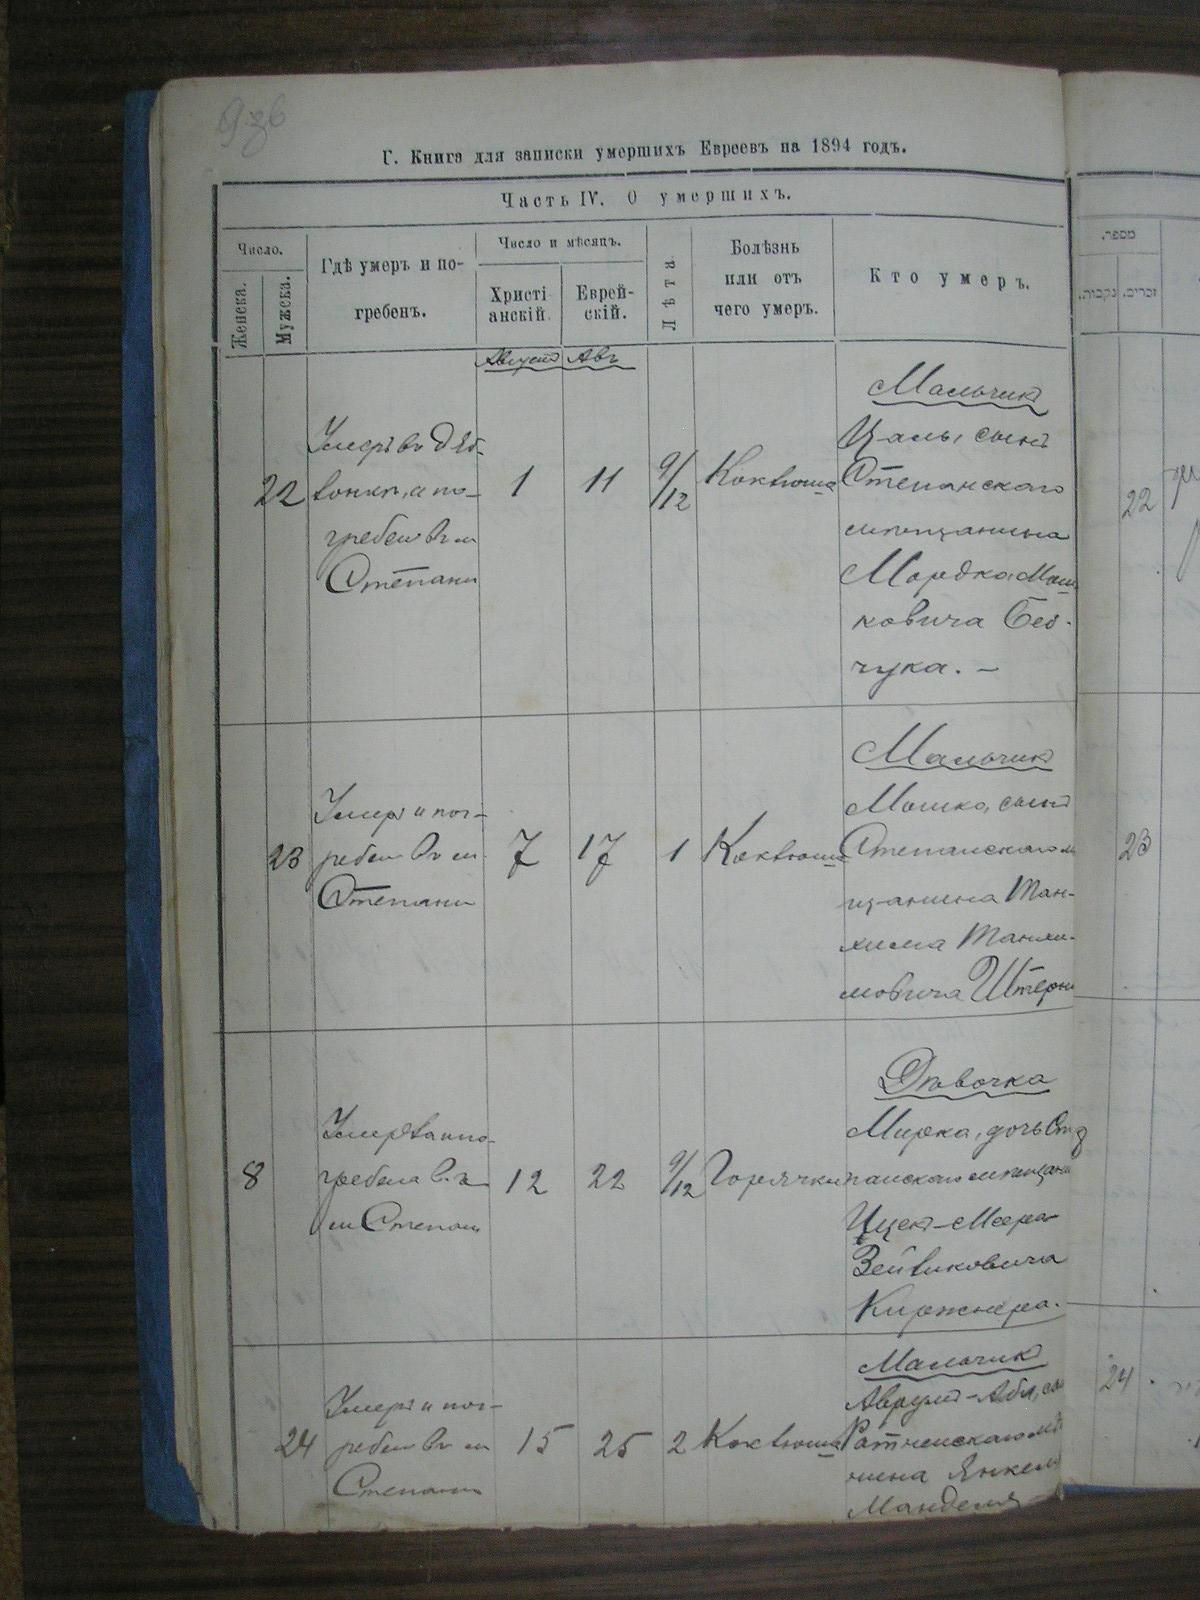 Г. Книга для записки умершихъ Евреевъ на 1894 годъ.
Часть IV. О умершихъ.
Число.
Женска.
Мужска.
Гдѣ умеръ и по-
гребенъ.
Число и мѣсяцъ.
Христі
анскій.
Еврей-
скій.
Лѣта
Болѣзнь
или отъ
чего умеръ.
Кто умеръ.
מספר.
זכרים.
נקבות.
Августъ Авъ
22
гребен въ м
Степани
1
11
9/12
Коклюша
Мальчикъ
сынъ
Степанскаго
мѣщанина
Мордка Мош
ковича
чука. –
22
23
Умеръ и пог-
ребен въ м
Степани
7
17
1
Коклюша
Мальчикъ
Мошко, сынъ
Степанскаго м
щанина Тан-
хима Танхи-
мовича Штерна
23
8
Умерла и по-
гребена въ
м Степани
12
22
9/12
Горячки
Дѣвочка
Мирка, дочь Сте
панскаго мѣщани
Ицек-Меера
Зейликовича
Киржнера.
24
Умеръ и пог-
ребен въ м
Степани
15
25
2
Коклюша
Мальчикъ
Аврум-Аба, сы
Ратненскаго мѣ
нина Янкеля
Манделя
24